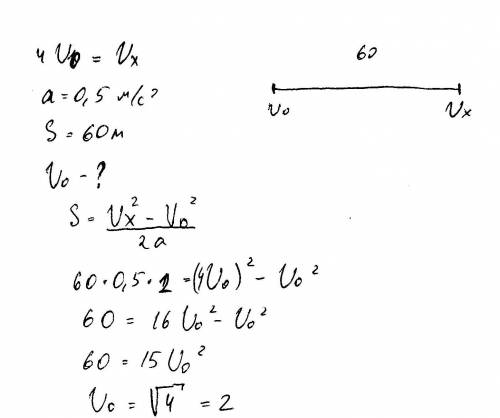 4 υ₀ = υₓ
a = 0,5 м/с²
S = 60м
υ₀ - ?
S = (υₓ² - υ₀²) / 2a
60 · 0,5 · 2 = (4υ₀)² - υ₀²
60 = 16 υ₀² - υ₀²
60 = 15 υ₀²
υ₀ = √4 = 2
60
υ₀ υₓ